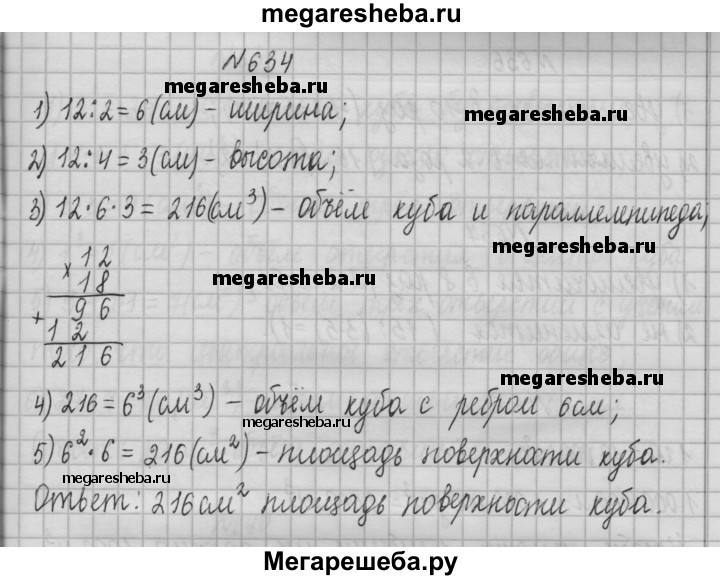 megaresheba.ru
№634
megaresheba.ru
1) 12:2=6(см)-ширина;
megaresheba.ru
2) 12:4=3(см)-высота;
3) 12·6·3=216(см³)-объём куба и параллелепипеда;
megaresheba.ru
× 12
18
megaresheba.ru
+ 96
12
216
megaresheba.ru
4) 216=6³(см³)-объём куба с ребром 6см;
megaresheba.ru
5) 6²·6=216(см²)-площадь поверхности куба.
megaresheba.ru
Ответ: 216см² площадь поверхности куба.
Мегарешеба.ру